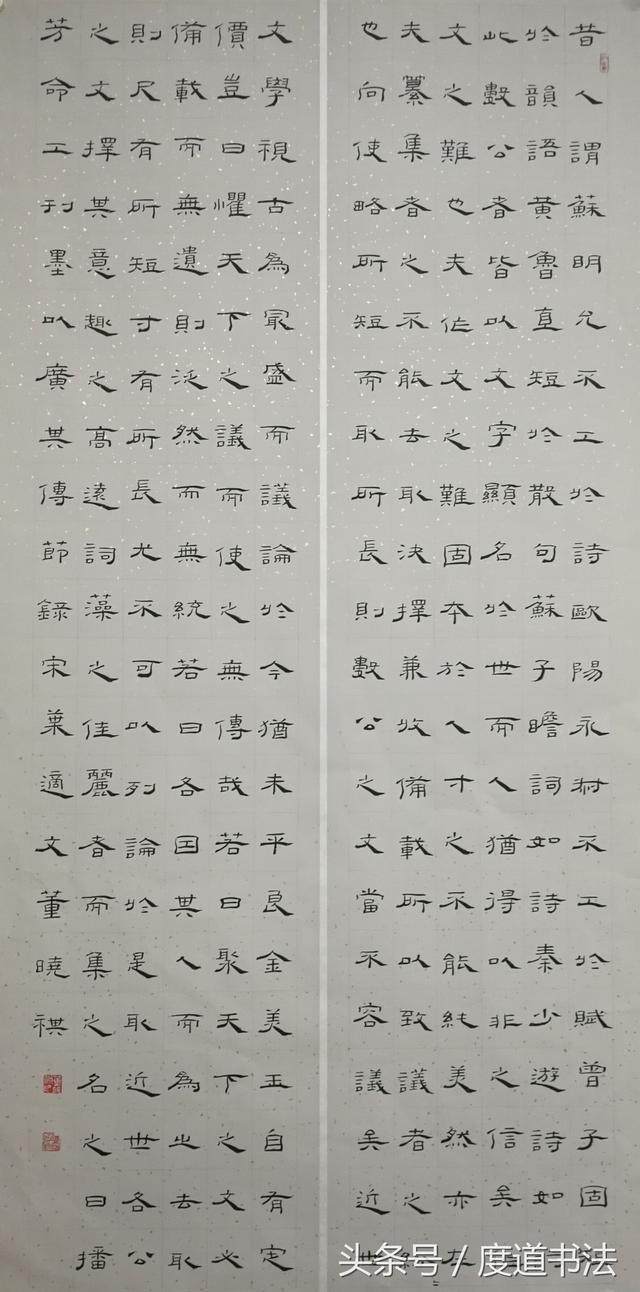 昔人謂蘇明允不工於詩歐陽永叔不工於賦曾子固
於韻語黃魯直短於散句蘇子瞻詞如詩秦少游詩如
此數公者皆以文字顯名於世而人猶得以非之信矣
文之難也夫作文之難固本於人才之不能純美然亦在
夫纂集者之不能去取決擇兼收備載所以致議者之
也向使略所短而取所長則數公之文當不容議矣近世
文學視古為最盛而議論於今猶未平良金美玉自有定
價豈曰懼天下之議而使之無傳哉若曰聚天下之文必
備載而無遺則泛然而無統若曰各因其人而為之去取
則尺有所短寸有所長尤不可以列論於是取近世各公
之文擇其意趣之高遠詞藻之佳麗者而集之名之曰播
芳命工刊墨以廣其傳節錄宋葉適文董曉祺
头条号 / 度道书法